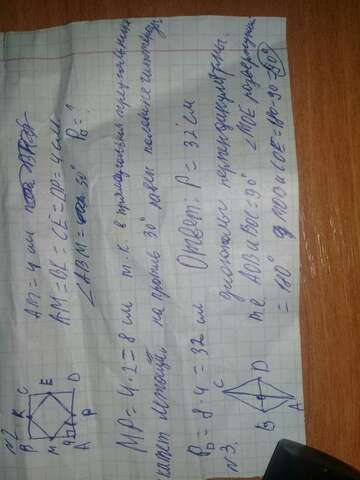 N2
B K C
M E
A P D
AM = 4 см
AM = BK = CE = DP = 4 см
30° Pв = ?
MP = 4 · 2 = 8 см т. к. в прямоугольном треугольнике
катет лежащий на против 30° равен половине гипотенузы
Pв = 8 · 4 = 32 см Ответ: P = 32 см
N3.
C
B D
A
диагонали перпендикулярны.
те AOB и BOC = 90°
= 180°